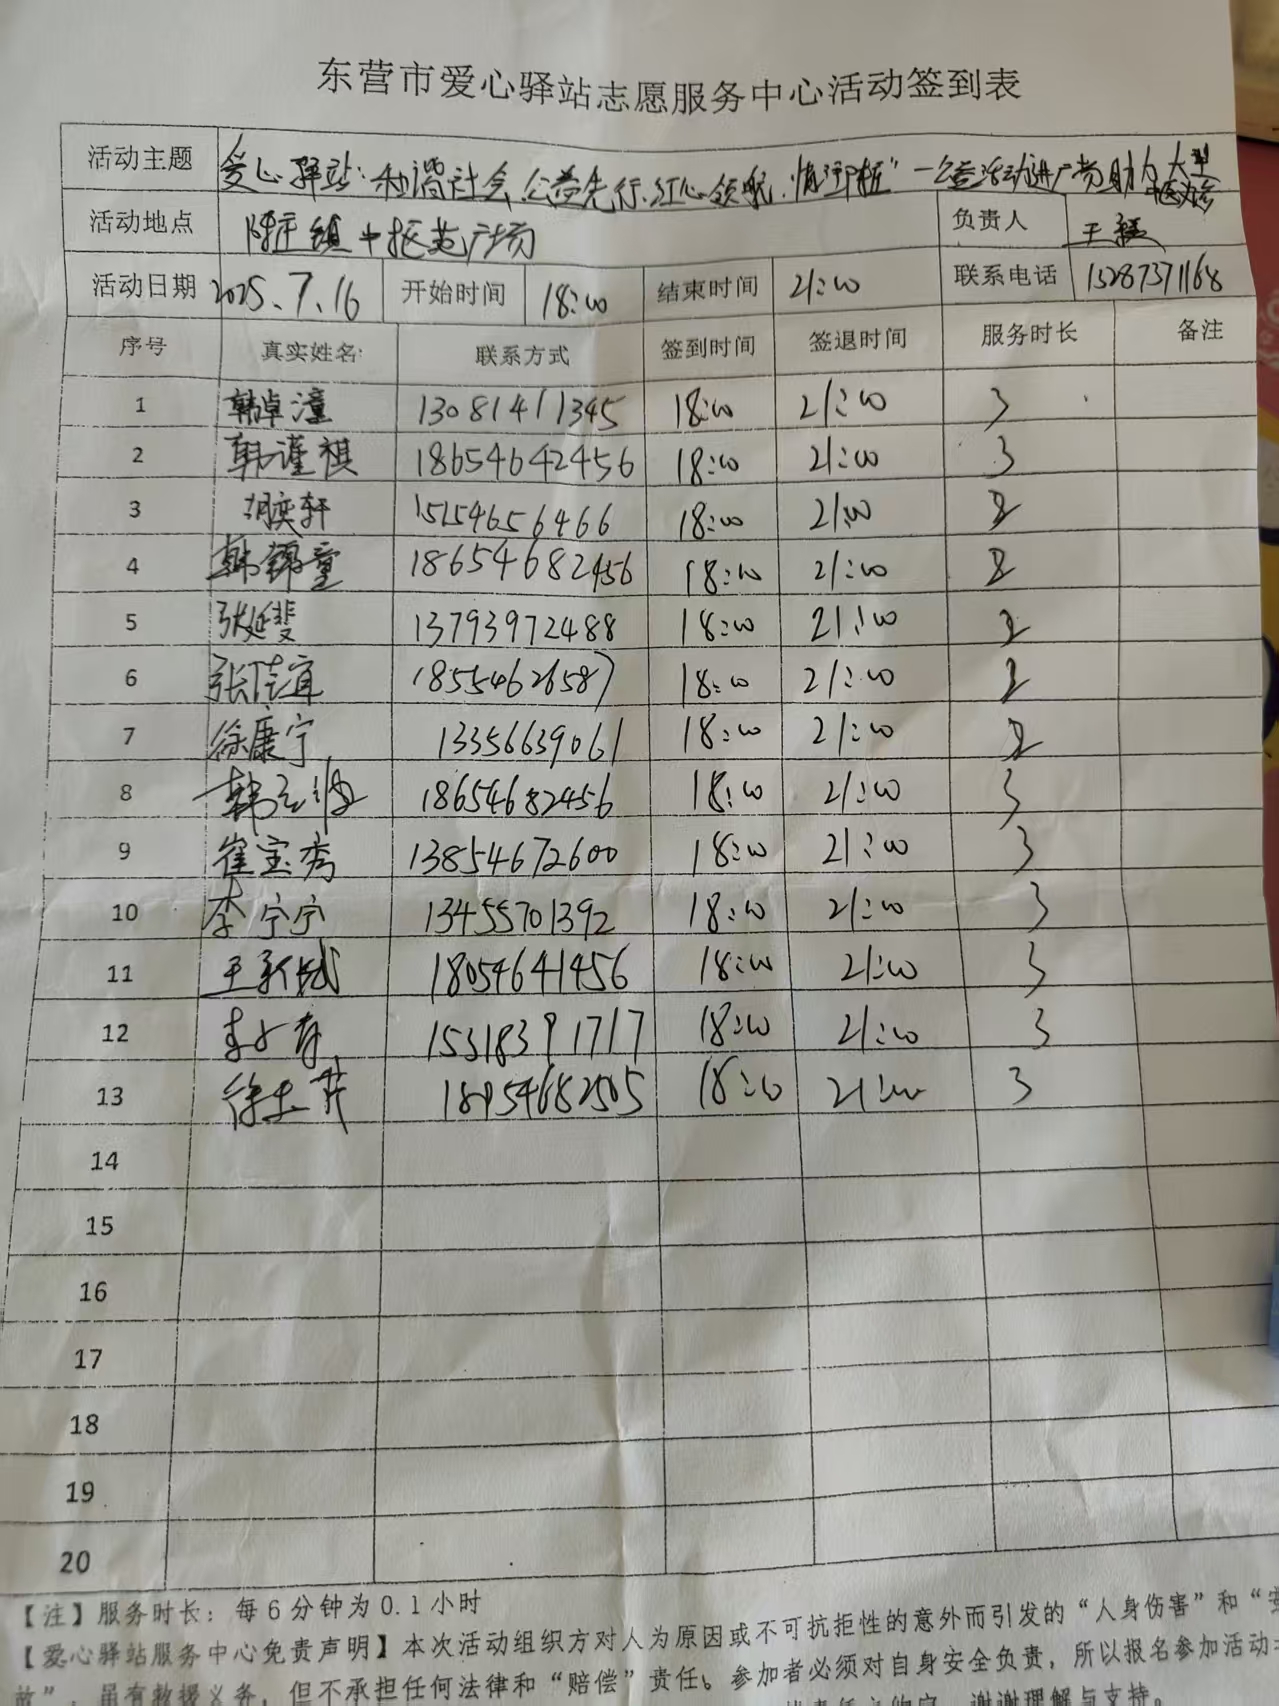 东营市爱心驿站志愿服务中心活动签到表
活动主题 爱心驿站·和谐社会、公益先行、红心领航、情 一公益活动进广场助力大型
活动地点 陈庄镇中 广场 负责人 王
活动日期 2025.7.16 开始时间 18:00 结束时间 21:00 联系电话 15287371168
序号 真实姓名 联系方式 签到时间 签退时间 服务时长 备注
1 韩卓潼 13081411345 18:00 21:00 3
2 韩谨祺 18654642456 18:00 21:00 3
3 胡奕轩 15154656466 18:00 21:00
4 韩锦童 18654682456 18:00 21:00
5 张延斐 13793972488 18:00 21:00
6 张佳宜 18554626587 18:00 21:00
7 徐康宁 13356639061 18:00 21:00
8 韩 18654682456 18:00 21:00 3
9 崔宝秀 13854672600 18:00 21:00 3
10 李宁宁 13455701392 18:00 21:00 3
11 王新城 18054641456 18:00 21:00 3
12 李 15318391717 18:00 21:00 3
13 徐 18954682505 18:00 21:00 3
14
15
16
17
18
19
20
【注】服务时长：每6分钟为0.1小时
【爱心驿站服务中心免责声明】本次活动组织方对人为原因或不可抗拒性的意外而引发的“人身伤害”和“
故”，虽有救援义务，但不承担任何法律和“赔偿”责任。参加者必须对自身安全负责，所以报名参加活动
谢谢理解与支持